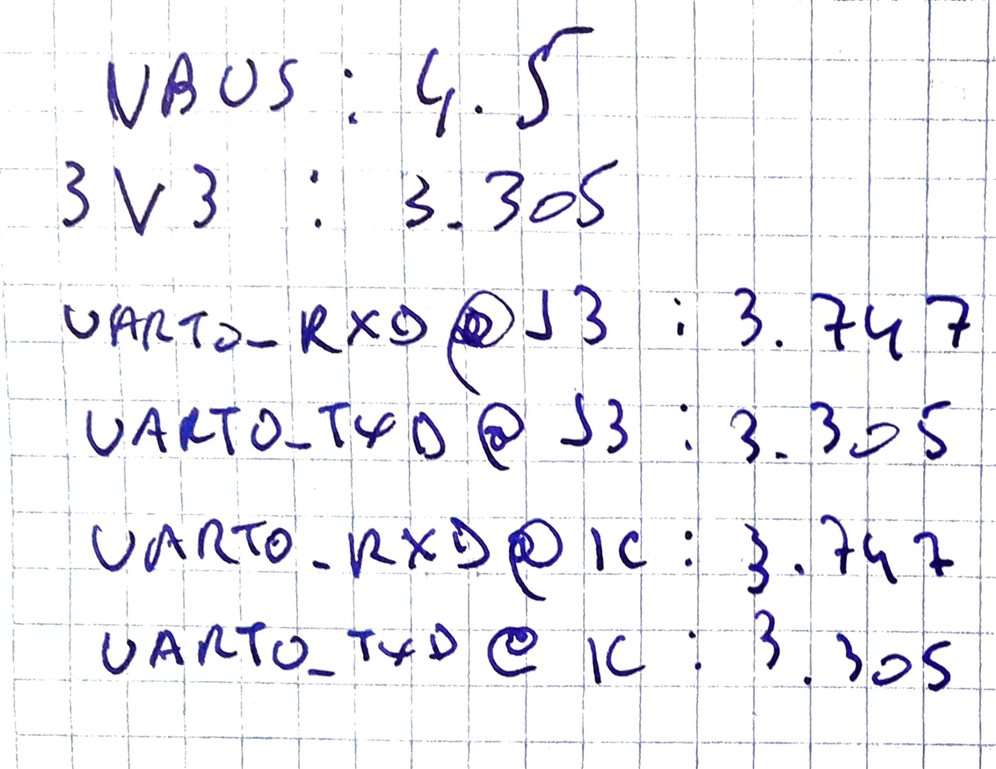 VBUS : 4.5
3V3 : 3.305
UART0_RXD @ J3 : 3.747
UART0_TXD @ J3 : 3.305
UART0_RXD @ IC : 3.747
UART0_TXD @ IC : 3.305